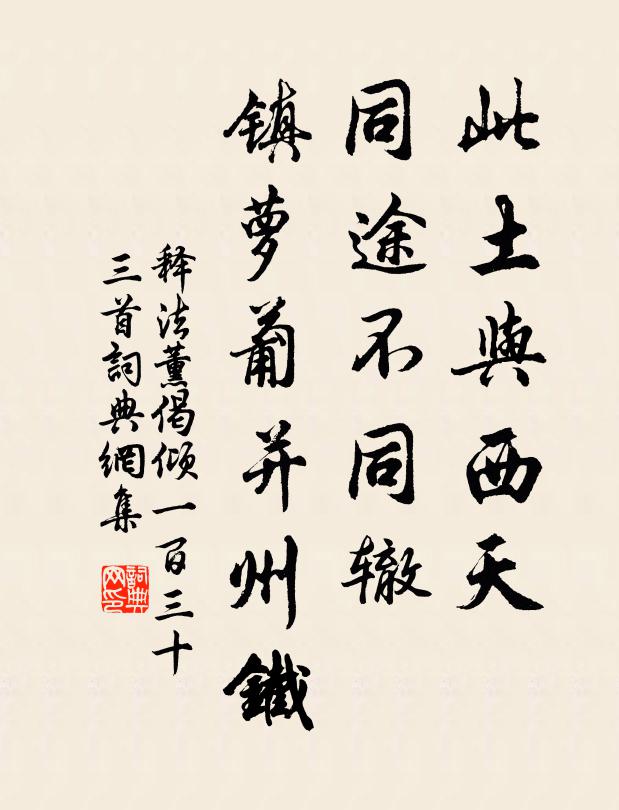 此土與西天
同途不同辙
镇萝蔔并州鐵
释法薰偈倾一百三十
三首詞典網集
詞典网印